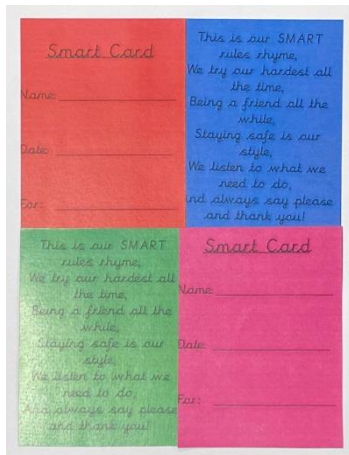 Smart Card
Name:
Date:
For:
This is our SMART
rules rhyme,
We try our hardest all
the time,
Being a friend all the
while,
Staying safe is our
style,
We listen to what we
need to do,
And always say please
and thank you!
This is our SMART
rules rhyme,
We try our hardest all
the time,
Being a friend all the
while,
Staying safe is our
style,
We listen to what we
need to do,
And always say please
and thank you!
Smart Card
Name:
Date:
For: